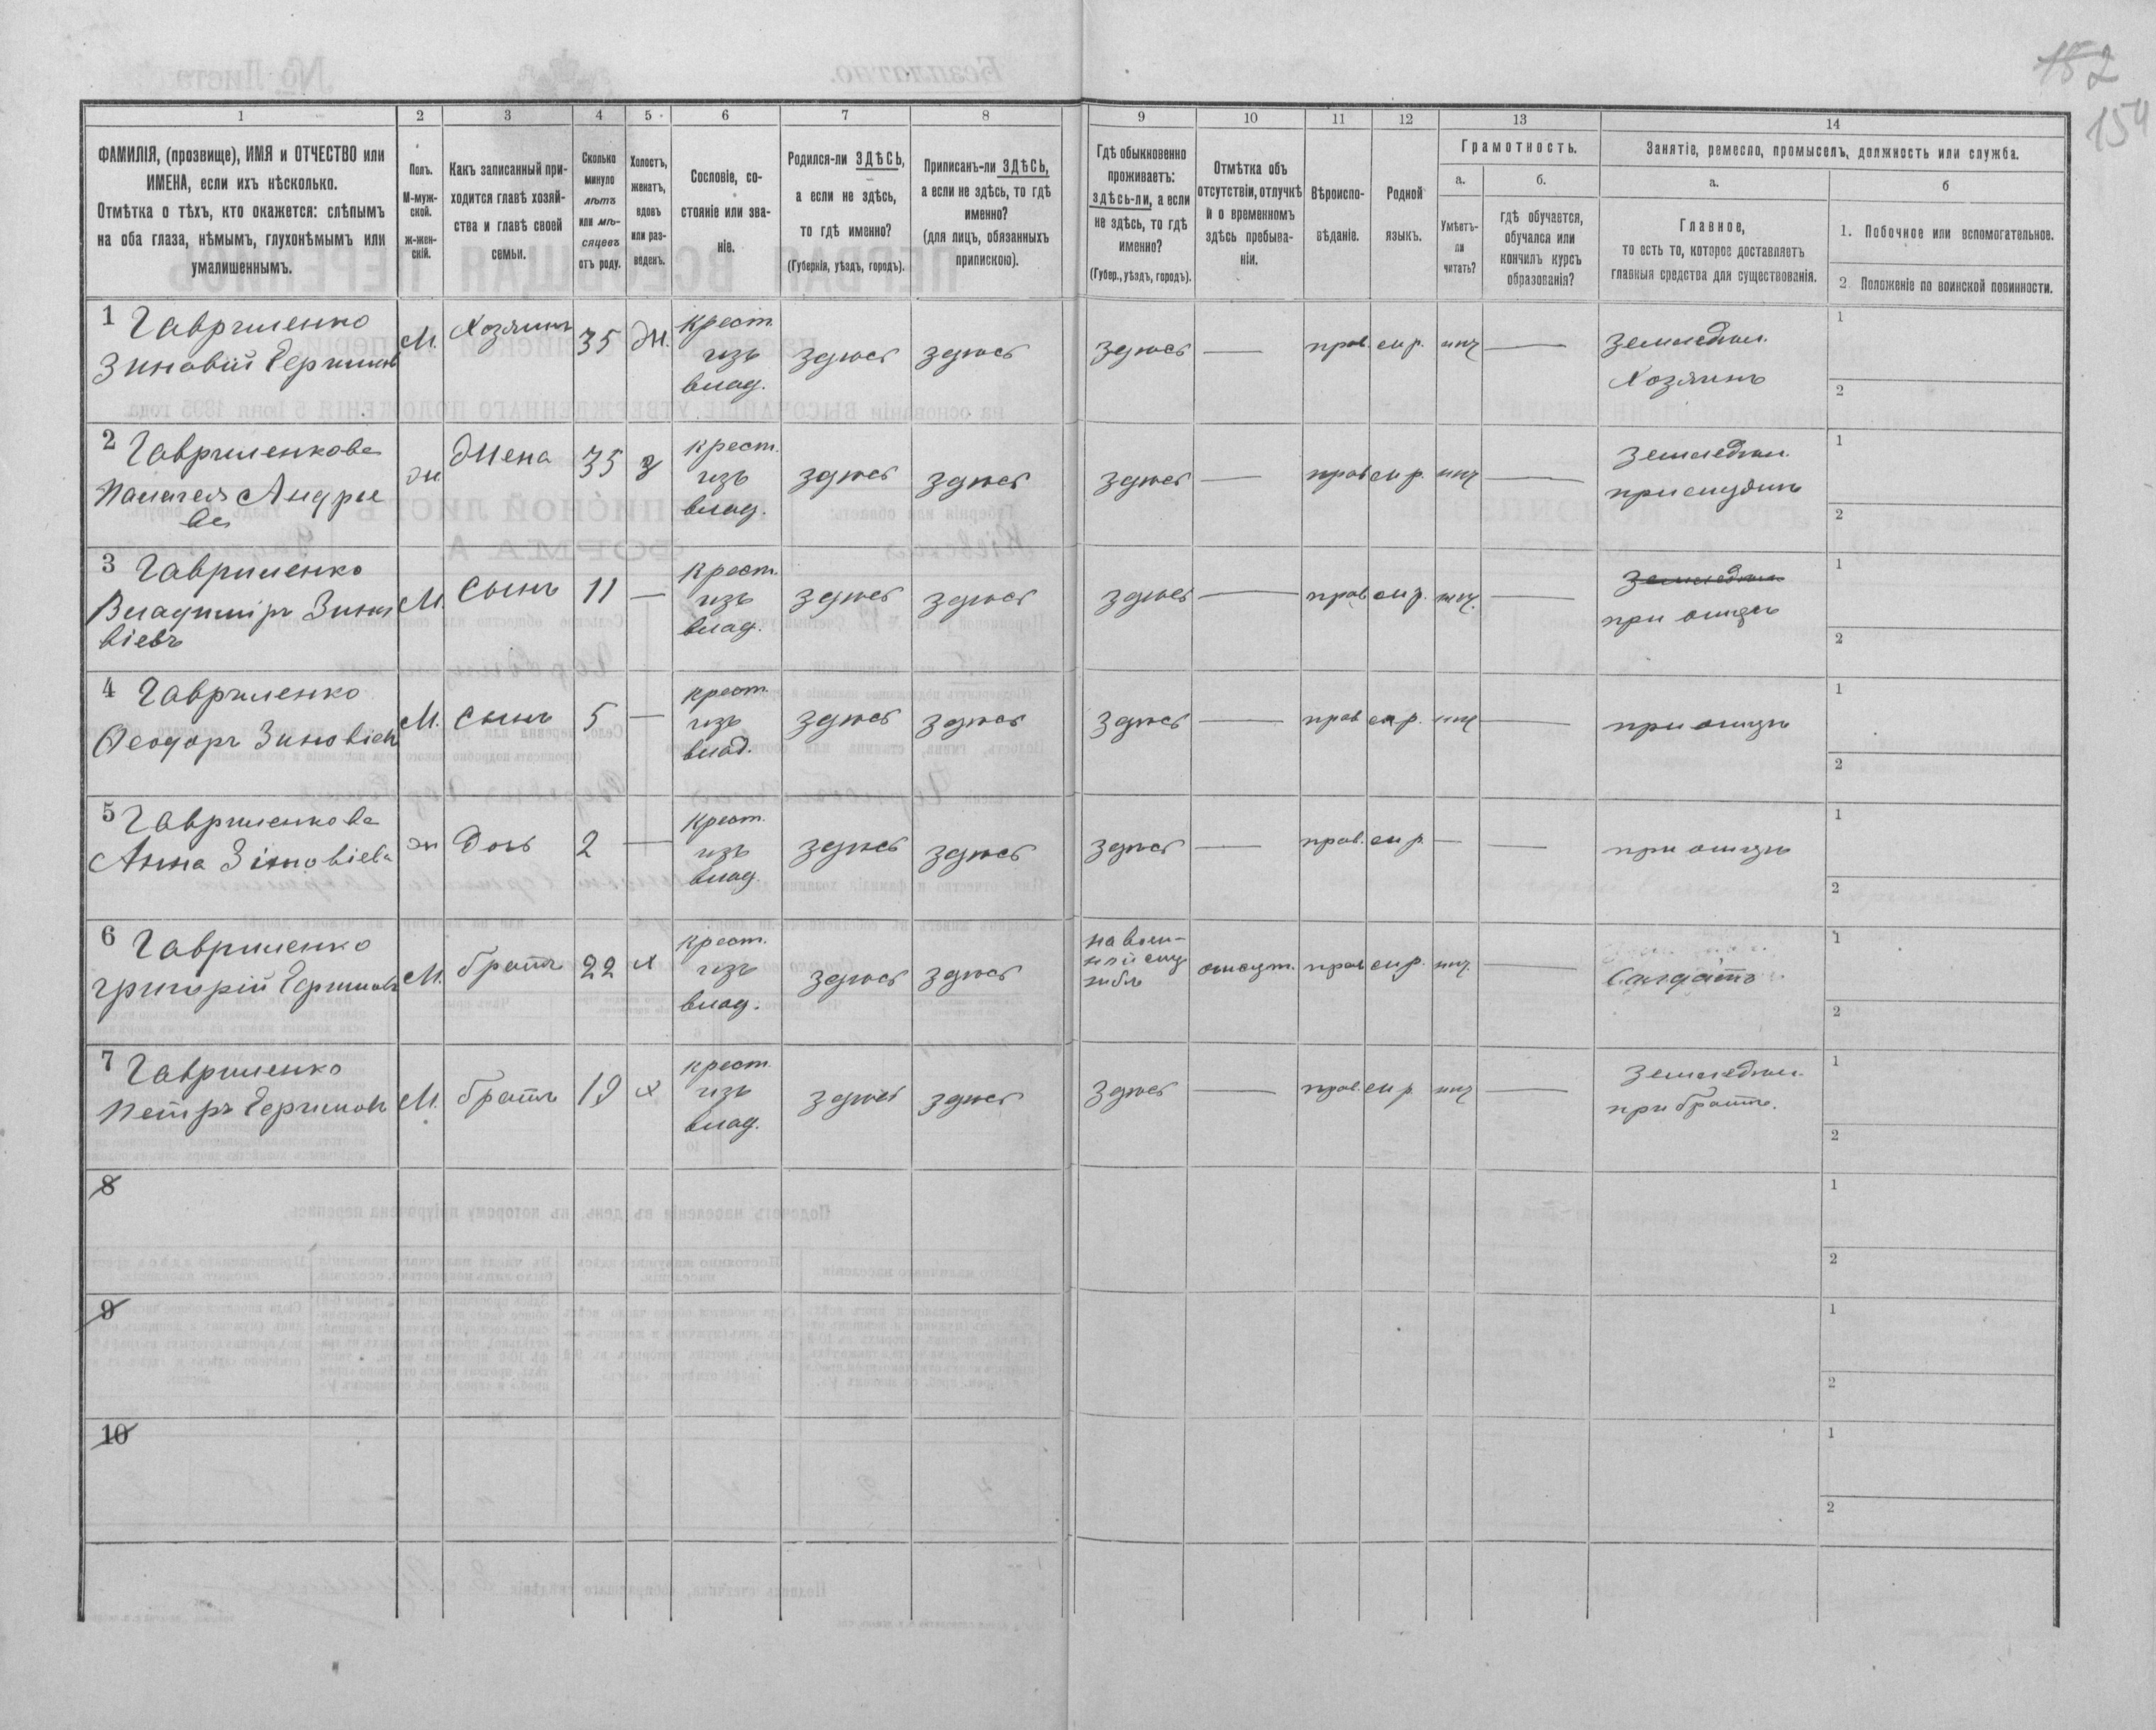 152
154
1
2
3
4
5
6
7
8
9
10
11
12
13
14
ФАМИЛІЯ, (прозвище), ИМЯ и ОТЧЕСТВО или
ИМЕНА, если ихъ нѣсколько.
Отмѣтка о тѣхъ, кто окажется: слѣпымъ
на оба глаза, нѣмымъ, глухонѣмымъ или
умалишеннымъ.
Полъ.
М-муж-
ской.
ж-жен-
скій.
Какъ записанный при-
ходится главѣ хозяй-
ства и главѣ своей
семьи.
Сколько
минуло
лѣтъ
или мѣ-
сяцевъ
отъ роду.
Холостъ,
женатъ,
вдовъ
или раз-
веденъ.
Сословіе, со-
стояніе или зва-
ніе.
Родился-ли ЗДѢСЬ,
а если не здѣсь,
то гдѣ именно?
(Губернія, уѣздъ, городъ).
Приписанъ-ли ЗДѢСЬ,
а если не здѣсь, то гдѣ
именно?
(для лицъ, обязанныхъ
припискою).
Гдѣ обыкновенно
проживаетъ:
здѣсь-ли, а если
не здѣсь, то гдѣ
именно?
(Губер., уѣздъ, городъ).
Отмѣтка объ
отсутствіи, отлучкѣ
и о временномъ
здѣсь пребыва-
ніи.
Вѣроиспо-
вѣданіе.
Родной
языкъ.
Грамотность.
а.
Умѣетъ-
ли
читать?
б.
гдѣ обучается,
обучался или
кончилъ курсъ
образованія?
Занятіе, ремесло, промыселъ, должность или служба.
а.
Главное,
то есть то, которое доставляетъ
главныя средства для существованія.
б
1. Побочное или вспомогательное.
2 Положеніе по воинской повинности.
1 Гавриленко
Зиновій Ефимов
М.
Хозяинъ
35
Ж.
крест.
изъ
влад.
здѣсь
здѣсь
здѣсь
—
прав.
мр.
—
земледѣл.
Хозяинъ
1
2
2 Гавриленкова
Пелагея Андрее
ва
ж
Жена
35
з
крест.
изъ
влад.
здѣсь
здѣсь
здѣсь
—
прав
мр.
—
земледѣл.
при мужѣ
1
2
3 Гавриленко
Владиміръ Зино
віевъ
М.
Сынъ
11
—
крест.
изъ
влад.
здѣсь
здѣсь
здѣсь
—
прав
мр.
—
земледѣл.
при отцѣ
1
2
4 Гавриленко
Ѳеодоръ Зиновіев
М.
Сынъ
5
—
крест.
изъ
влад.
здѣсь
здѣсь
здѣсь
—
прав
мр.
—
при отцѣ
1
2
5 Гавриленкова
Анна Зіновіева
ж
Дочь
2
—
крест.
изъ
влад.
здѣсь
здѣсь
здѣсь
—
прав.
мр.
—
—
при отцѣ
1
2
6 Гавриленко
Григорій Ефимовъ
М.
братъ
22
х
крест.
изъ
влад.
здѣсь
здѣсь
на воен-
ной слу
жбѣ
отсут.
прав
мр.
—
Солдатъ
1
2
7 Гавриленко
Петръ Ефимов
М.
братъ
19
х
крест.
изъ
влад.
здѣсь
здѣсь
здѣсь
—
прав.
мр.
—
земледѣл.
при братѣ.
1
2
8
1
2
9
1
2
10
1
2